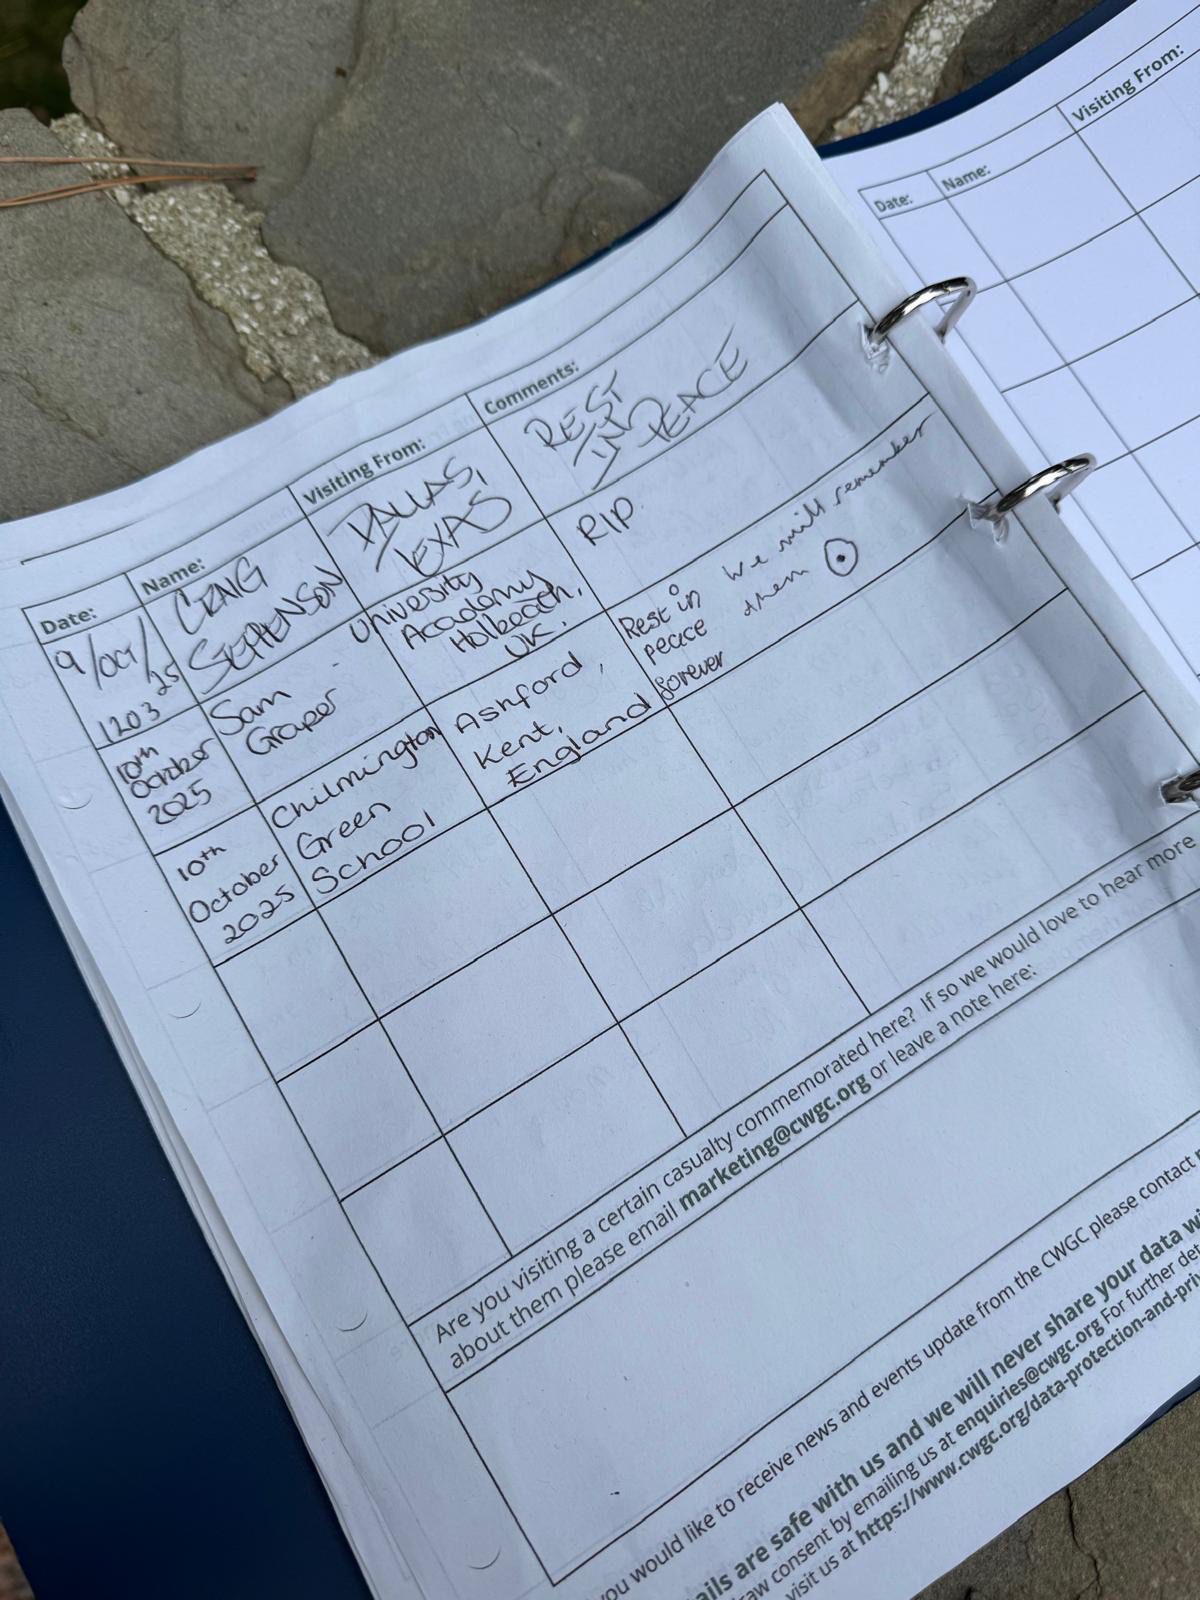 Date:
Name:
Visiting From:
Comments:
9/OCT/
25
1203
CRAIG
STEPHENSON
DALLAS,
TEXAS
REST
IN
PEACE
10th
October
2025
Sam
Graper
Univesity
Academy
Holbeach,
UK.
RIP.
10th
October
2025
Chilmington
Green
School
Ashford,
Kent,
England
Rest in
peace
forever
We will remember
them
Are you visiting a certain casualty commemorated here? If so we would love to hear more
about them please email marketing@cwgc.org or leave a note here:
you would like to receive news and events update from the CWGC please contact
ails are safe with us and we will never share your data wi
raw consent by emailing us at enquiries@cwgc.org For further det
visit us at https://www.cwgc.org/data-protection-and-pri
Date:
Name:
Visiting From: